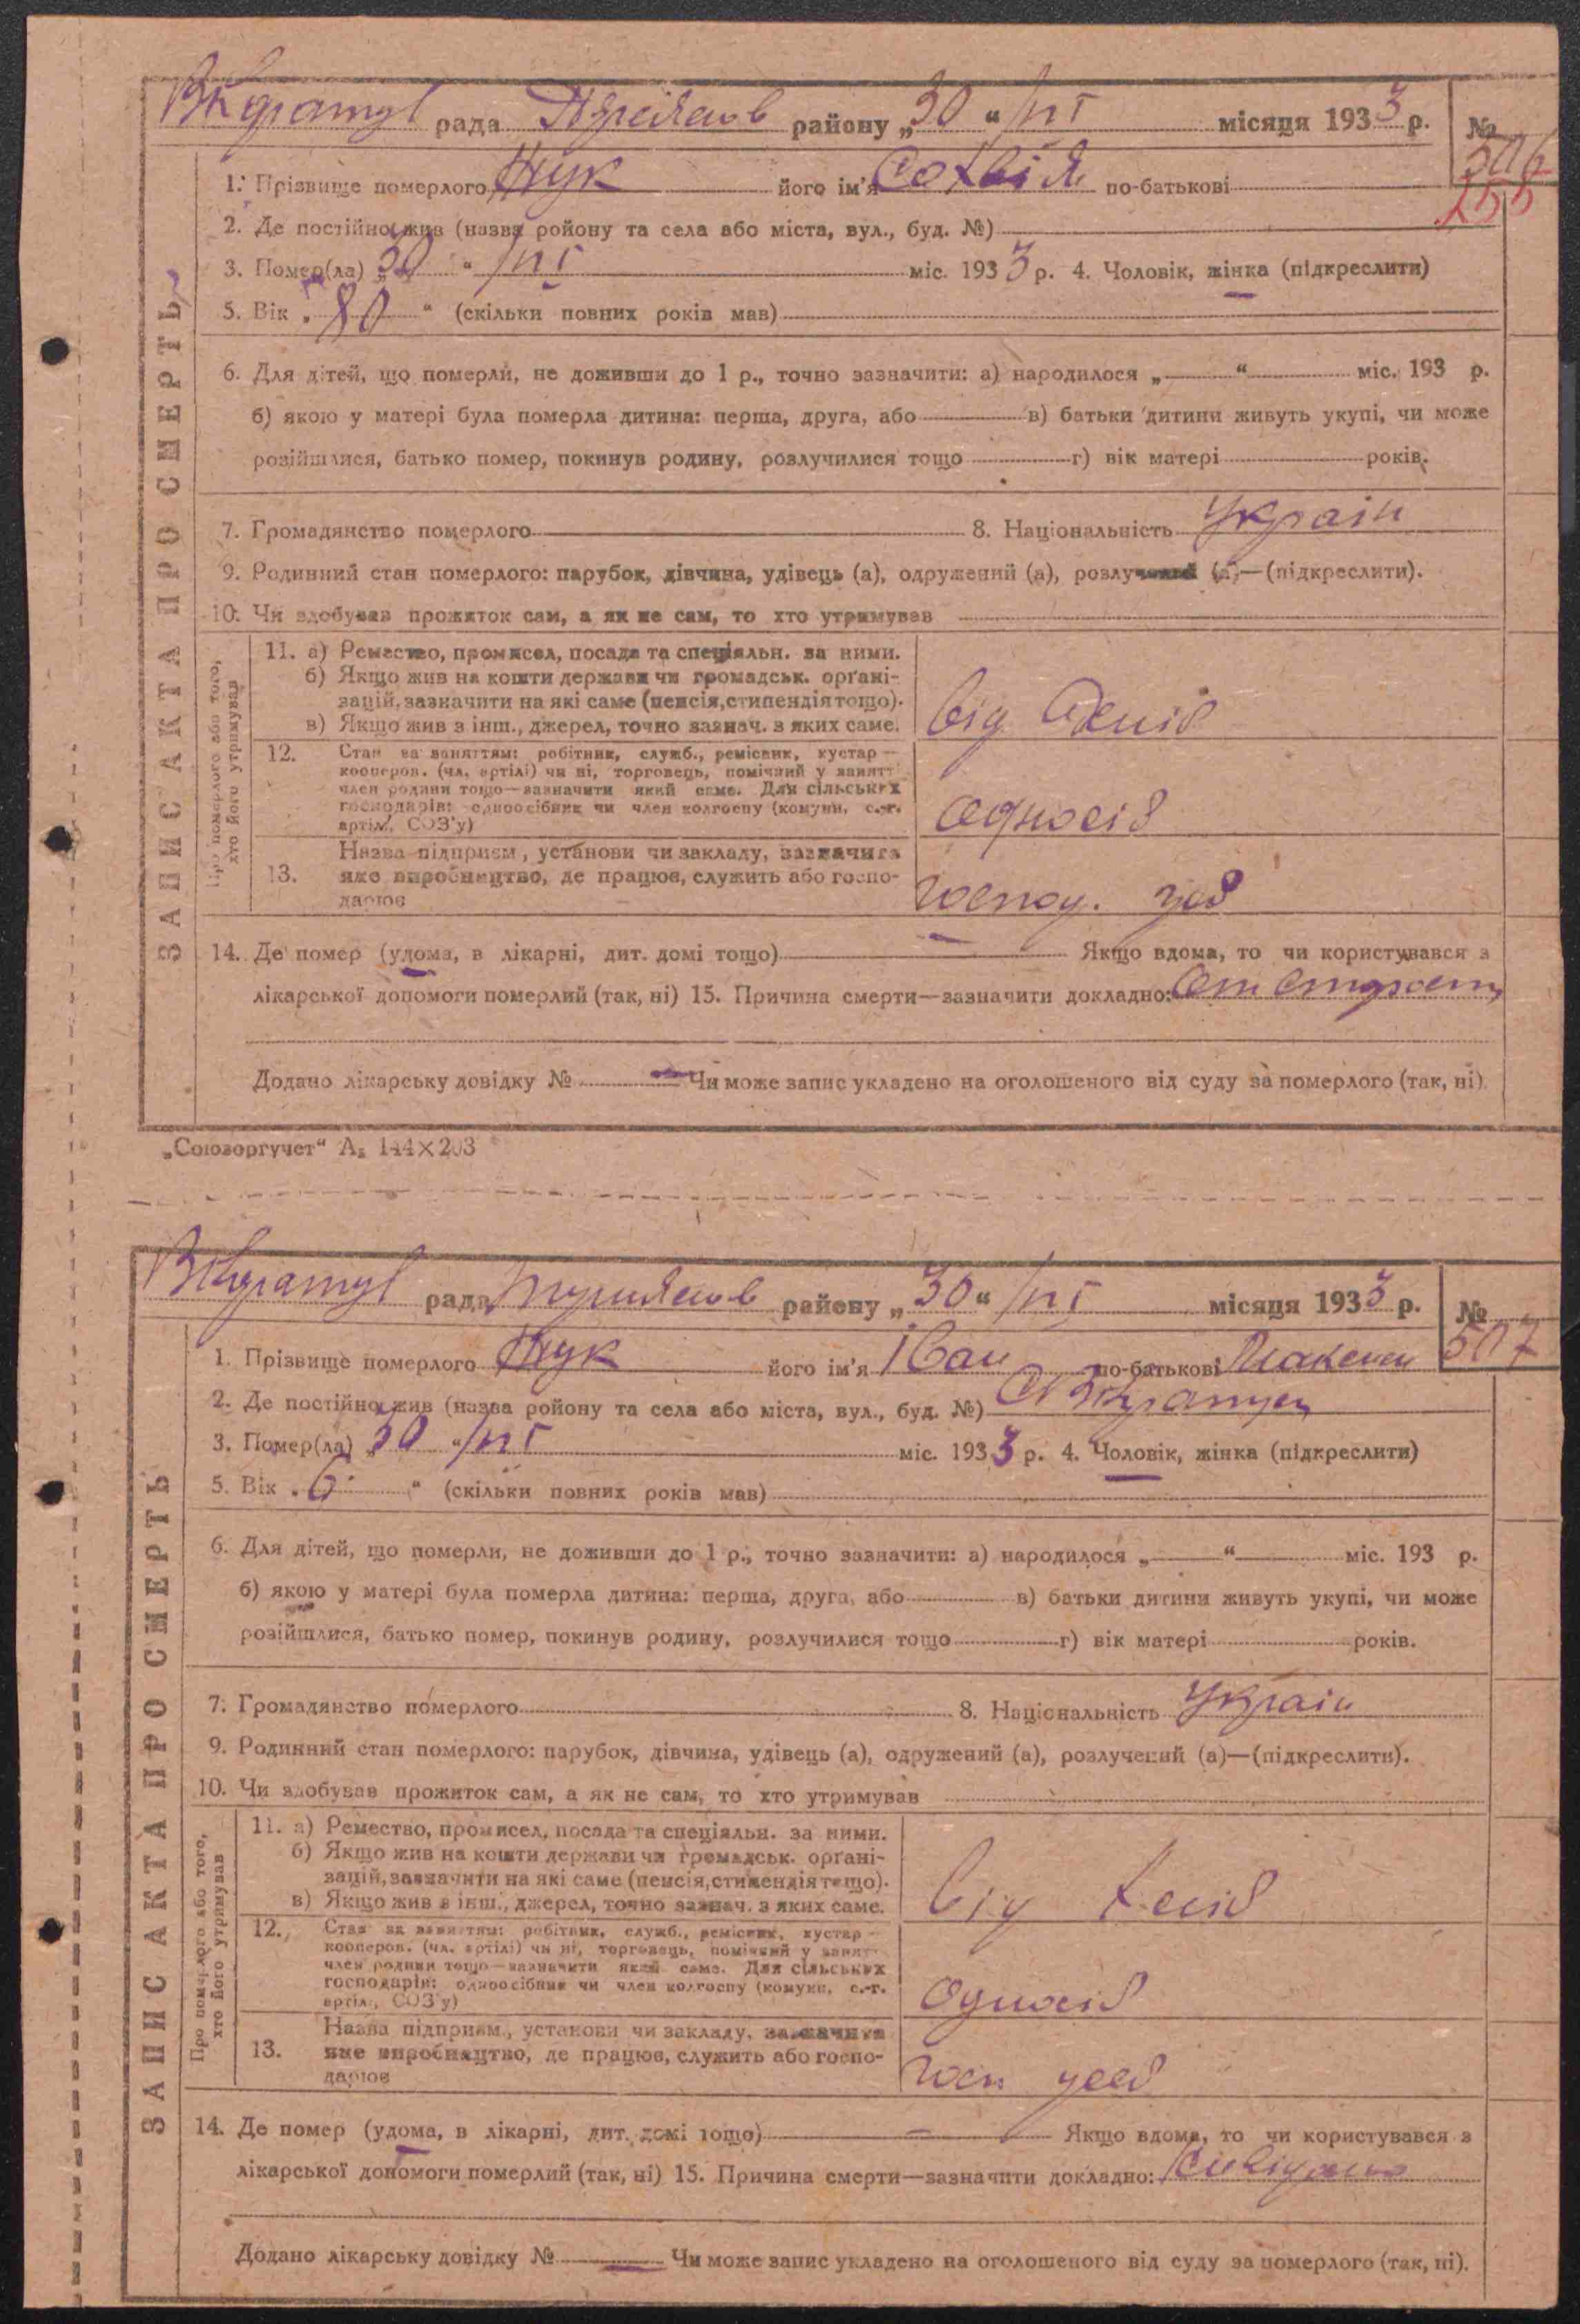 рада району „30“ місяця 1933 р. №
506
255
1. Прізвище померлого Жук його ім'я Софія по-батькові
2. Де постійно жив (назва ройону та села або міста, вул., буд. №)
3. Помер(ла) „30“ міс. 1933 р. 4. Чоловік, жінка (підкреслити)
5. Вік „80“ (скільки повних років мав)
6. Для дітей, що померли, не доживши до 1 р., точно зазначити: а) народилося „ “ міс. 193 р.
б) якою у матері була померла дитина: перша, друга, або в) батьки дитини живуть укупі, чи може
розійшлися, батько помер, покинув родину, розлучилися тощо г) вік матері років.
7. Громадянство померлого 8. Національність Україн
9. Родинний стан померлого: парубок, дівчина, удівець (а), одружений (а), розлучений (а)—(підкреслити).
10. Чи здобував прожиток сам, а як не сам, то хто утримував
ЗАПИС АКТА ПРО СМЕРТЬ
Про померлого або того,
хто його утримував
11. а) Ремество, промисел, посада та спеціяльн. за ними.
б) Якщо жив на кошти держави чи громадськ. органі-
зацій, зазначити на які саме (пенсія, стипендія тощо).
в) Якщо жив з інш., джерел, точно зазнач. з яких саме.
від
12. Стан за заняттям: робітник, служб., ремісник, кустар—
кооперов. (чл. артілі) чи ні, торговець, помічний у занятті
член родини тощо—зазначити який саме. Для сільських
господарів: одноосібник чи член колгоспу (комуни, с.-г.
артілі, СОЗ'у)
одноосіб
13. Назва підприєм., установи чи закладу, зазначити
яке виробництво, де працює, служить або госпо-
дарює
господ.
14. Де помер (удома, в лікарні, дит. домі тощо) Якщо вдома, то чи користувався з
лікарської допомоги померлий (так, ні) 15. Причина смерти—зазначити докладно: От старости
Додано лікарську довідку № — Чи може запис укладено на оголошеного від суду за померлого (так, ні).
„Союзоргучет“ А₅ 144×203
рада району „30“ місяця 1933 р. №
507
1. Прізвище померлого Жук його ім'я Іван по-батькові Максим
2. Де постійно жив (назва ройону та села або міста, вул., буд. №)
3. Помер(ла) „30“ міс. 1933 р. 4. Чоловік, жінка (підкреслити)
5. Вік „6“ (скільки повних років мав)
6. Для дітей, що померли, не доживши до 1 р., точно зазначити: а) народилося „ “ міс. 193 р.
б) якою у матері була померла дитина: перша, друга, або в) батьки дитини живуть укупі, чи може
розійшлися, батько помер, покинув родину, розлучилися тощо г) вік матері років.
7. Громадянство померлого 8. Національність Україн
9. Родинний стан померлого: парубок, дівчина, удівець (а), одружений (а), розлучений (а)—(підкреслити).
10. Чи здобував прожиток сам, а як не сам, то хто утримував
ЗАПИС АКТА ПРО СМЕРТЬ
Про померлого або того,
хто його утримував
11. а) Ремество, промисел, посада та спеціяльн. за ними.
б) Якщо жив на кошти держави чи громадськ. органі-
зацій, зазначити на які саме (пенсія, стипендія тощо).
в) Якщо жив з інш., джерел, точно зазнач. з яких саме.
від
12. Стан за заняттям: робітник, служб., ремісник, кустар—
кооперов. (чл. артілі) чи ні, торговець, помічний у занятті
член родини тощо—зазначити який саме. Для сільських
господарів: одноосібник чи член колгоспу (комуни, с.-г.
артілі, СОЗ'у)
одноосіб
13. Назва підприєм., установи чи закладу, зазначити
яке виробництво, де працює, служить або госпо-
дарює
14. Де помер (удома, в лікарні, дит. домі тощо) — Якщо вдома, то чи користувався з
лікарської допомоги померлий (так, ні) 15. Причина смерти—зазначити докладно: Невідомо
Додано лікарську довідку № — Чи може запис укладено на оголошеного від суду за померлого (так, ні).